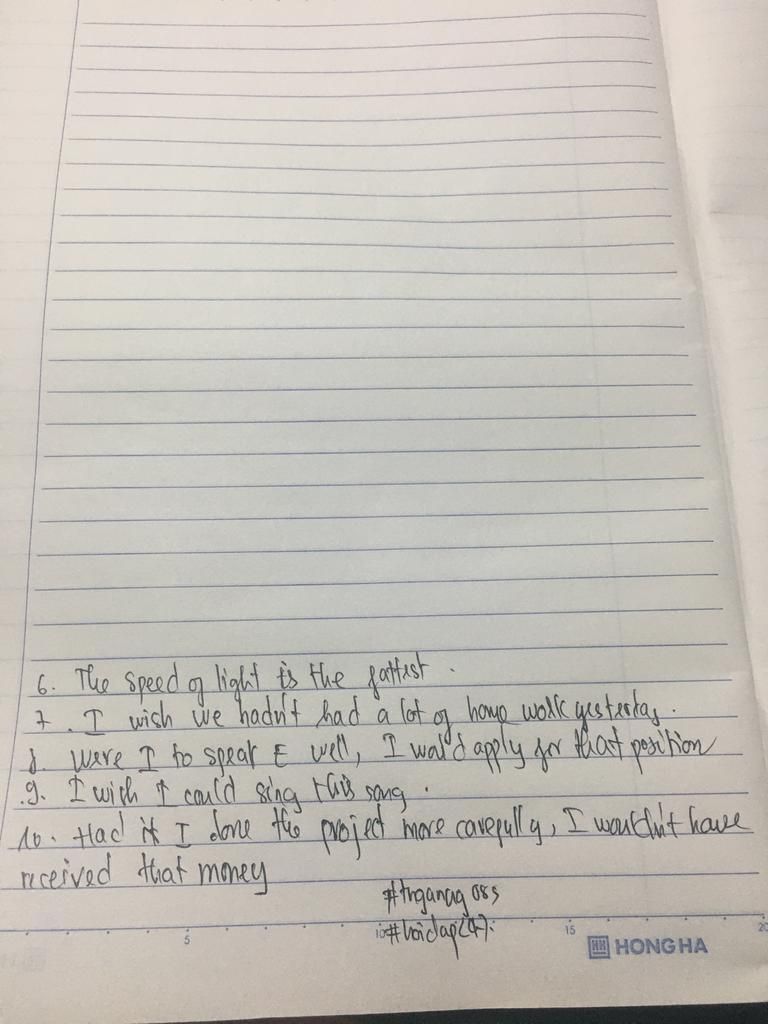 6. The speed of light is the fattest.
7. I wish we hadn't had a lot of home work yesterday.
8. Were I to speak E well, I would apply for that position
9. I wish I could sing this song.
10. Had it I done the project more carefully, I wouldn't have
received that money
5 10 15 20
HH HONG HA